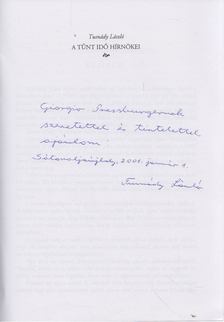 Tusnády László
A TŰNT IDŐ HÍRNÖKEI
Giorgio Pressburgernek
szeretettel és tisztelettel
ajánlom:
Sátoraljaújhely, 2001. január 1.
Tusnády László